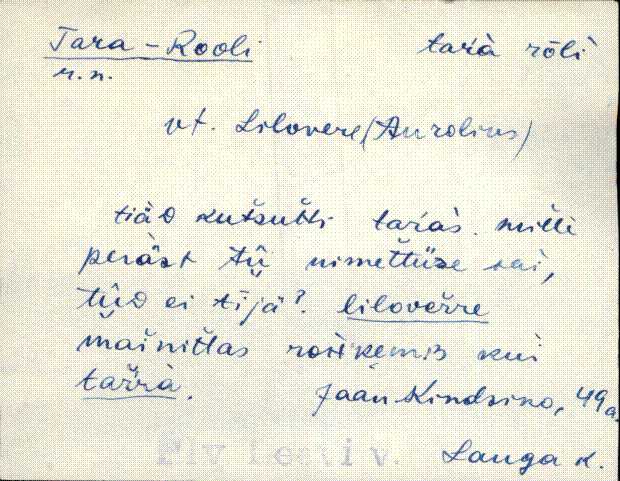 Tara-Rooli tarà rōli
r.n.
vt. Lilovere (Aurolius)
tiäD kutsutti taŕàs. miĺli
peräst tū nimettüze sai,
tūD ei tijä? liloveŕre
mainiťlas rohkemb kui
taŕrà. Jaan Kindsiko, 49 a.
Lauga k.